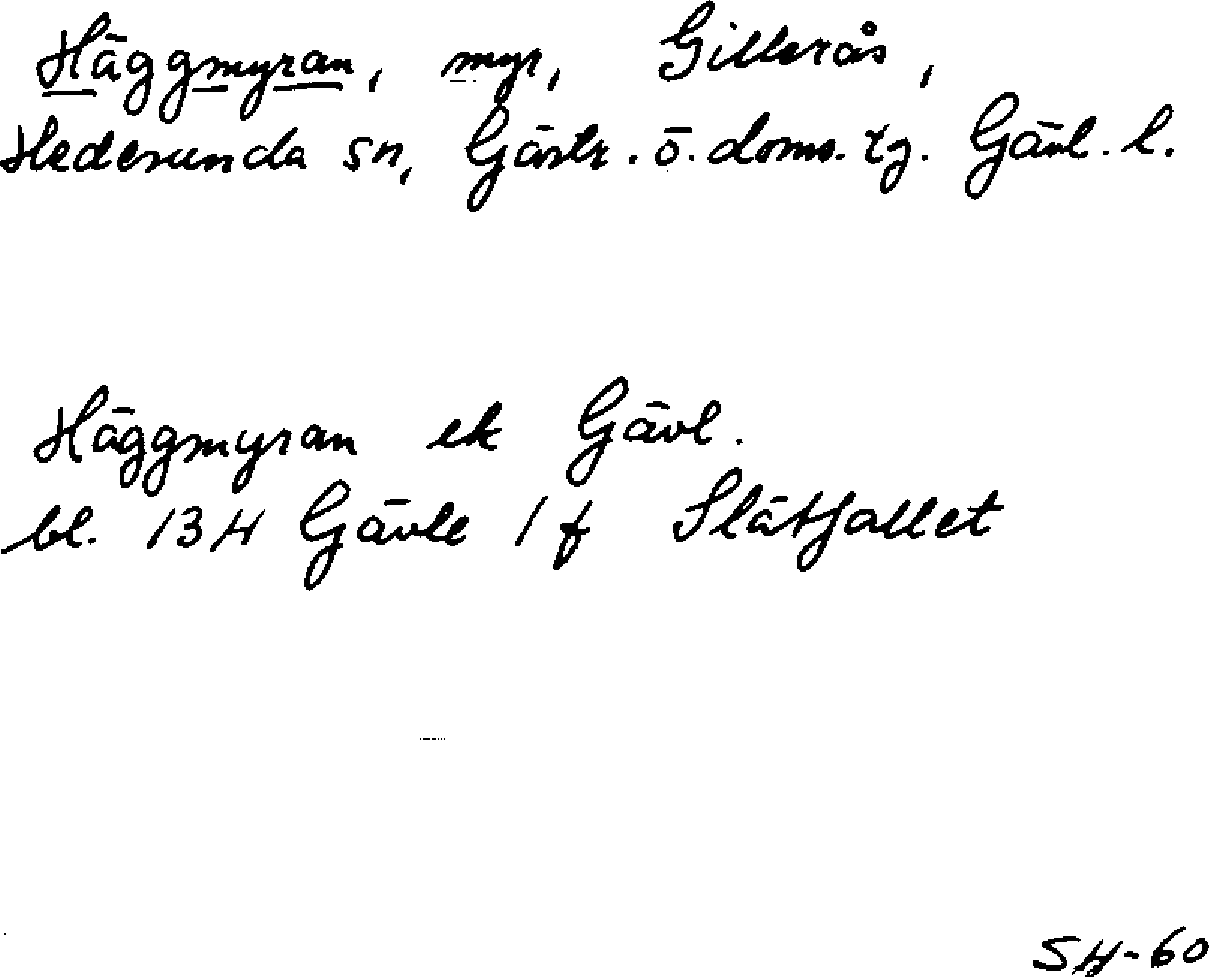 Häggmyran, myr, Gillerås,
Hedesunda sn, Gästr. ö. doms. tg. Gävl. l.
Häggmyran ek Gävl.
bl. 13 H Gävle 1 f Slåtfallet
SH-60